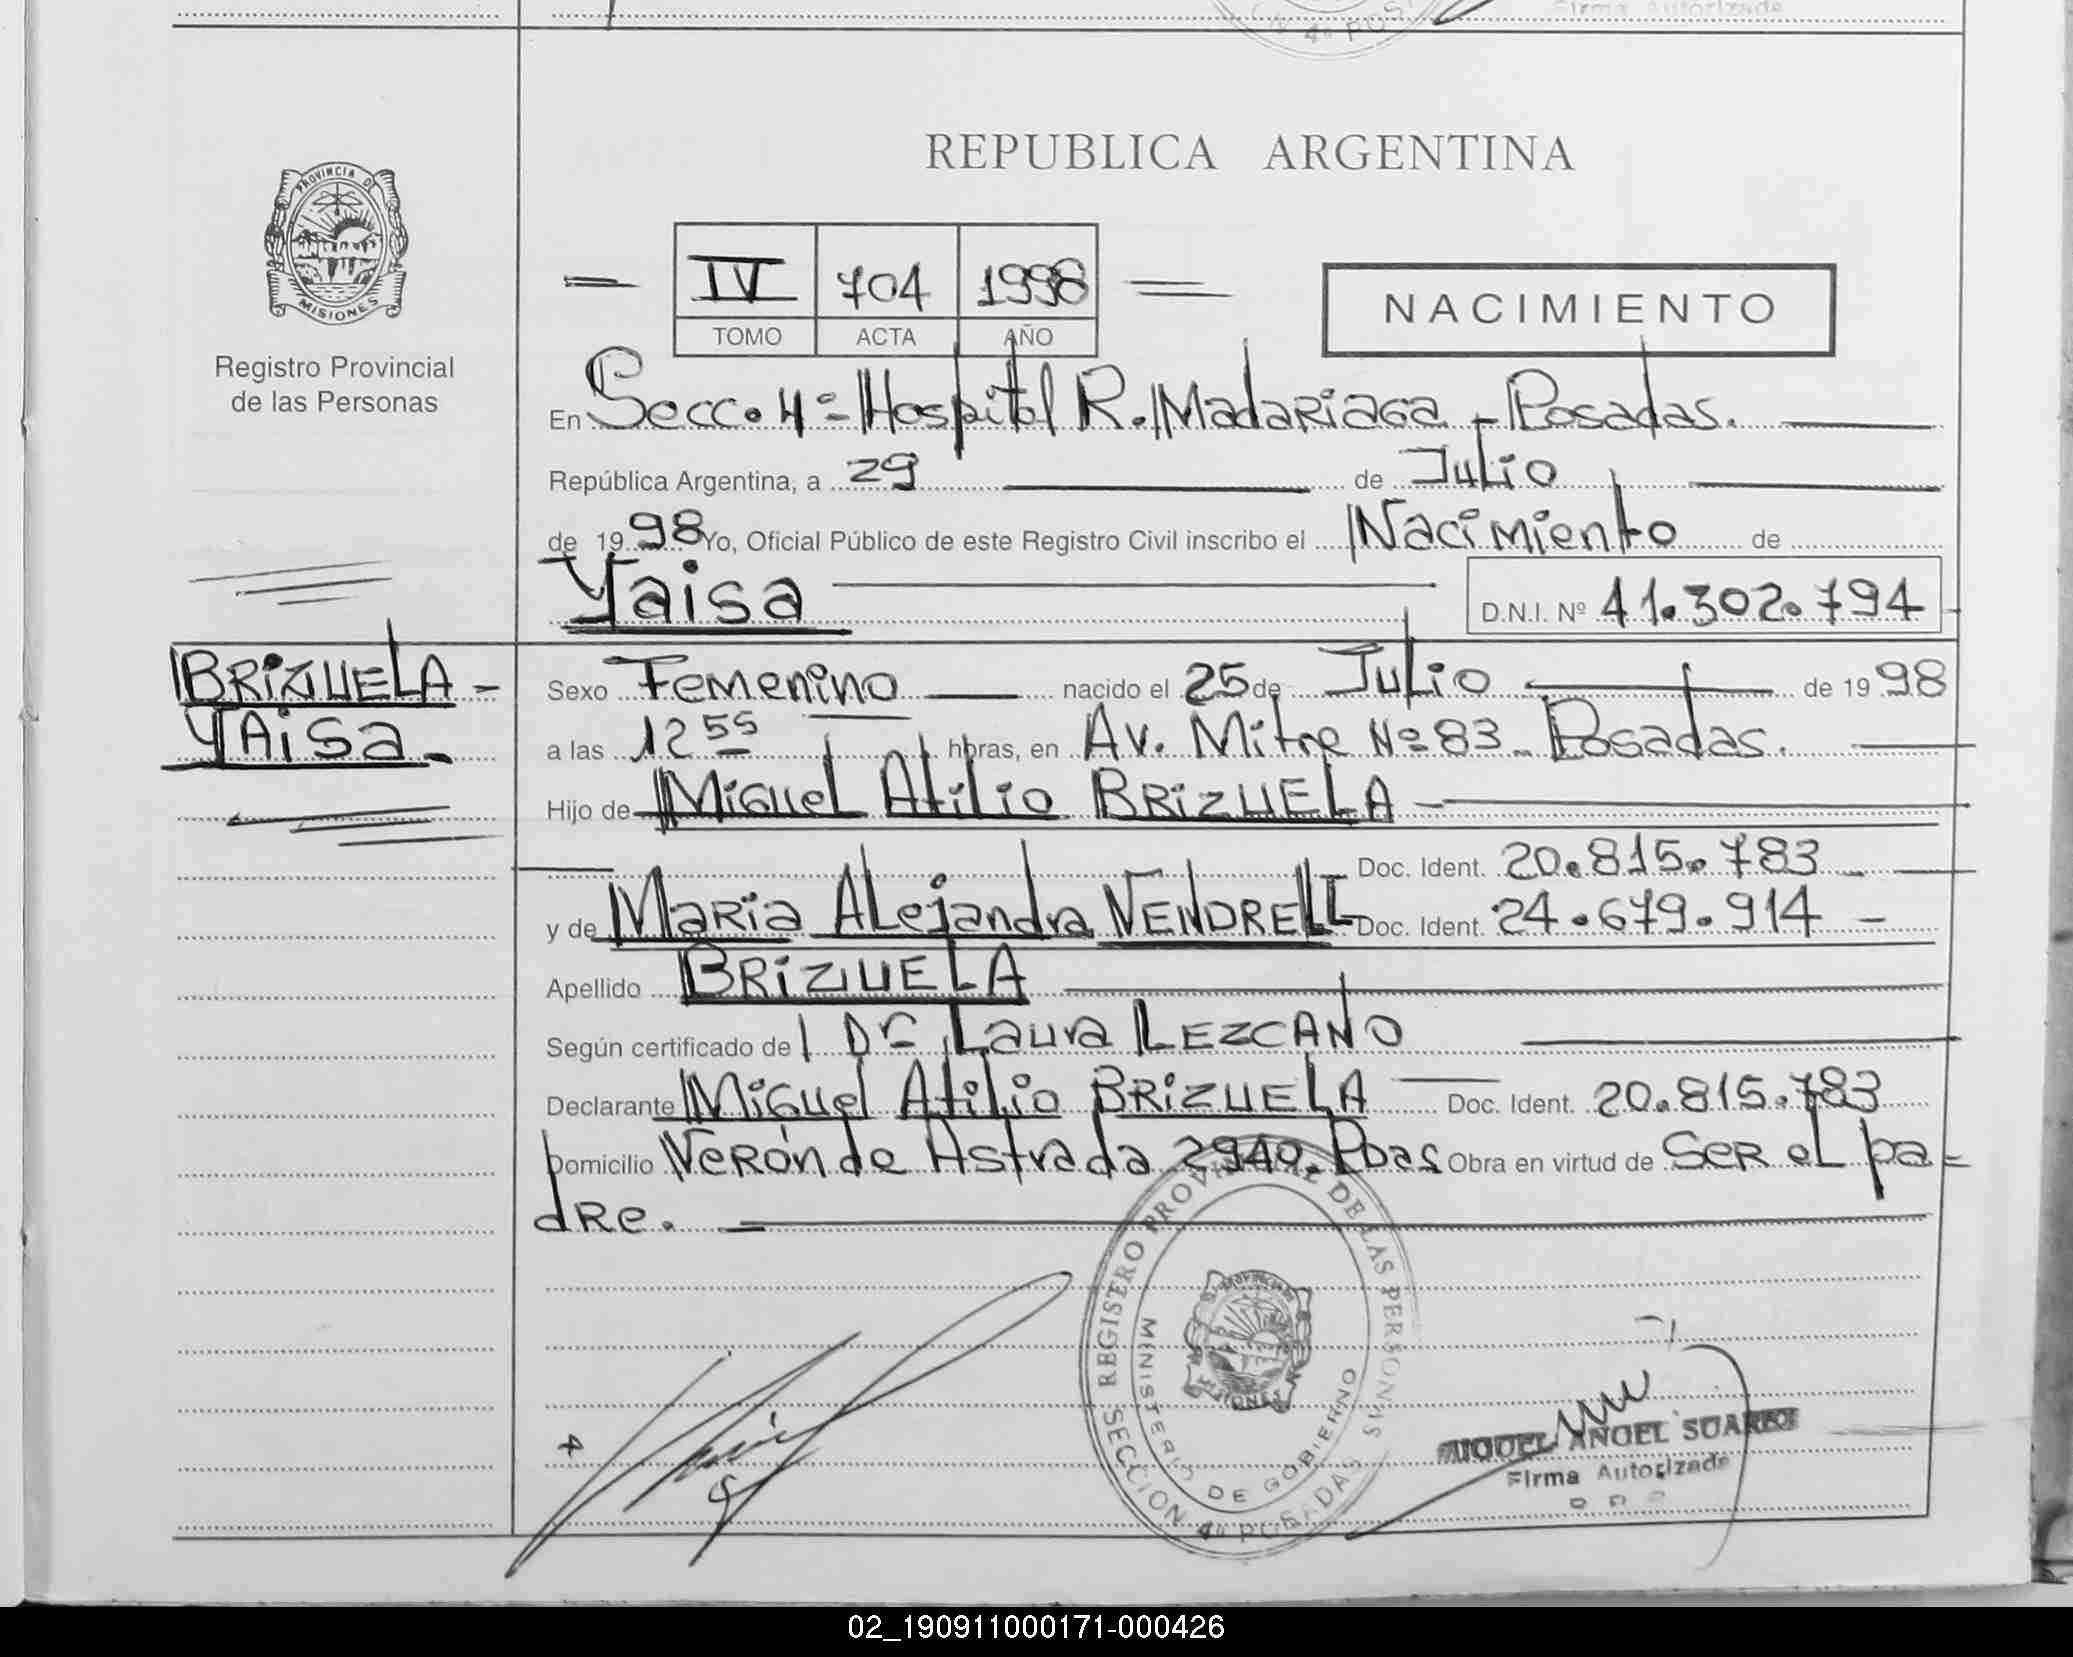 Firma Autorizada
N 4º POS
REPUBLICA ARGENTINA
PROVINCIA DE
MISIONES
Registro Provincial
de las Personas
IV 704 1998
TOMO ACTA AÑO
NACIMIENTO
En Secc. 4º = Hospital R. Madariaga - Posadas.
República Argentina, a 29 de Julio
de 1998 Yo, Oficial Público de este Registro Civil inscribo el Nacimiento de
Yaisa D.N.I. Nº 41.302.794
BRIZUELA -
YAisa -
Sexo Femenino nacido el 25 de Julio de 1998
a las 12 55 horas, en Av. Mitre Nº 83 - Posadas.
Hijo de Miguel Atilio BRIZUELA -
Doc. Ident. 20.815.783
y de Maria Alejandra VENDRELL Doc. Ident. 24.679.914 -
Apellido BRIZUELA
Según certificado de Dr Laura LEZCANO
Declarante Miguel Atilio BRIZUELA Doc. Ident. 20.815.783
Domicilio Verón de Astrada 2940. Pdas Obra en virtud de ser el pa=
dre.
REGISTRO PROVINCIAL DE LAS PERSONAS
MINISTERIO DE GOBIERNO
SECCION 4º POSADAS
MISIONES
MIGUEL ANGEL SUAREZ
Firma Autorizada
02_190911000171-000426